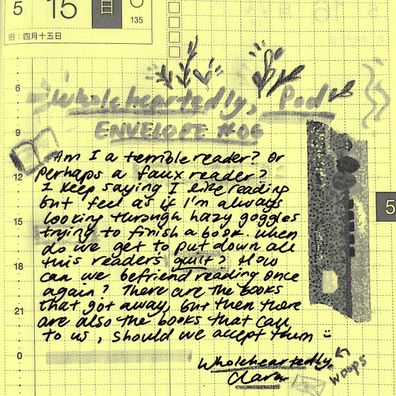 5 15 日
135
旧：四月十五日
Wholeheartedly, Pod
ENVELOPE #06
Am I a terrible reader? Or
perhaps a faux reader?
I keep saying I like reading
but feel as if I'm always
looking through hazy goggles
trying to finish a book. When
do we get to put down all
this readers guilt? How
can we befriend reading once
again? There are the books
that got away, but then there
are also the books that call
to us, should we accept them
Wholeheartedly,
Clara
woops
6
9
12
15
18
21
0
5